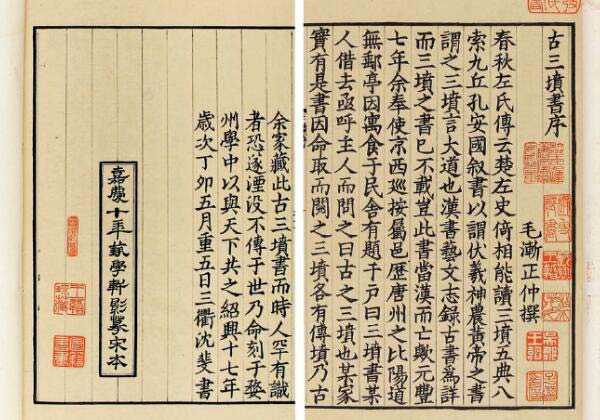 古三墳書序
毛漸正仲撰
春秋左氏傳云楚左史倚相能讀三墳五典八
索九丘孔安國叙書以謂伏羲神農黃帝之書
謂之三墳言大道也漢書藝文志錄古書爲詳
而三墳之書已不載豈此書當漢而亡歟元豐
七年余奉使京西巡按屬邑歷唐州之比陽道
無郵亭因寓食于民舍有題于戸曰三墳書某
人借去亟呼主人而問之曰古之三墳也某家
實有是書因命取而閱之三墳各有傳墳乃古
余家藏此古三墳書而時人罕有識
者恐遂湮没不傳于世乃命刻于婺
州學中以與天下共之紹興十七年
歲次丁卯五月重五日三衢沈斐書
嘉慶十年蓺學軒影摹宋本